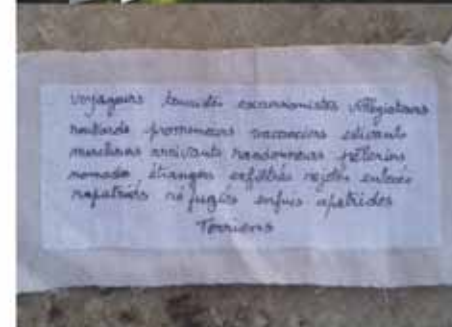 voyageurs touristes excursionnistes villégiateurs
routards promeneurs vacanciers estivants
marcheurs arrivants randonneurs pèlerins
nomades étrangers exfiltrés rejetés enlevés
rapatriés réfugiés enfuis apatrides
Terriens